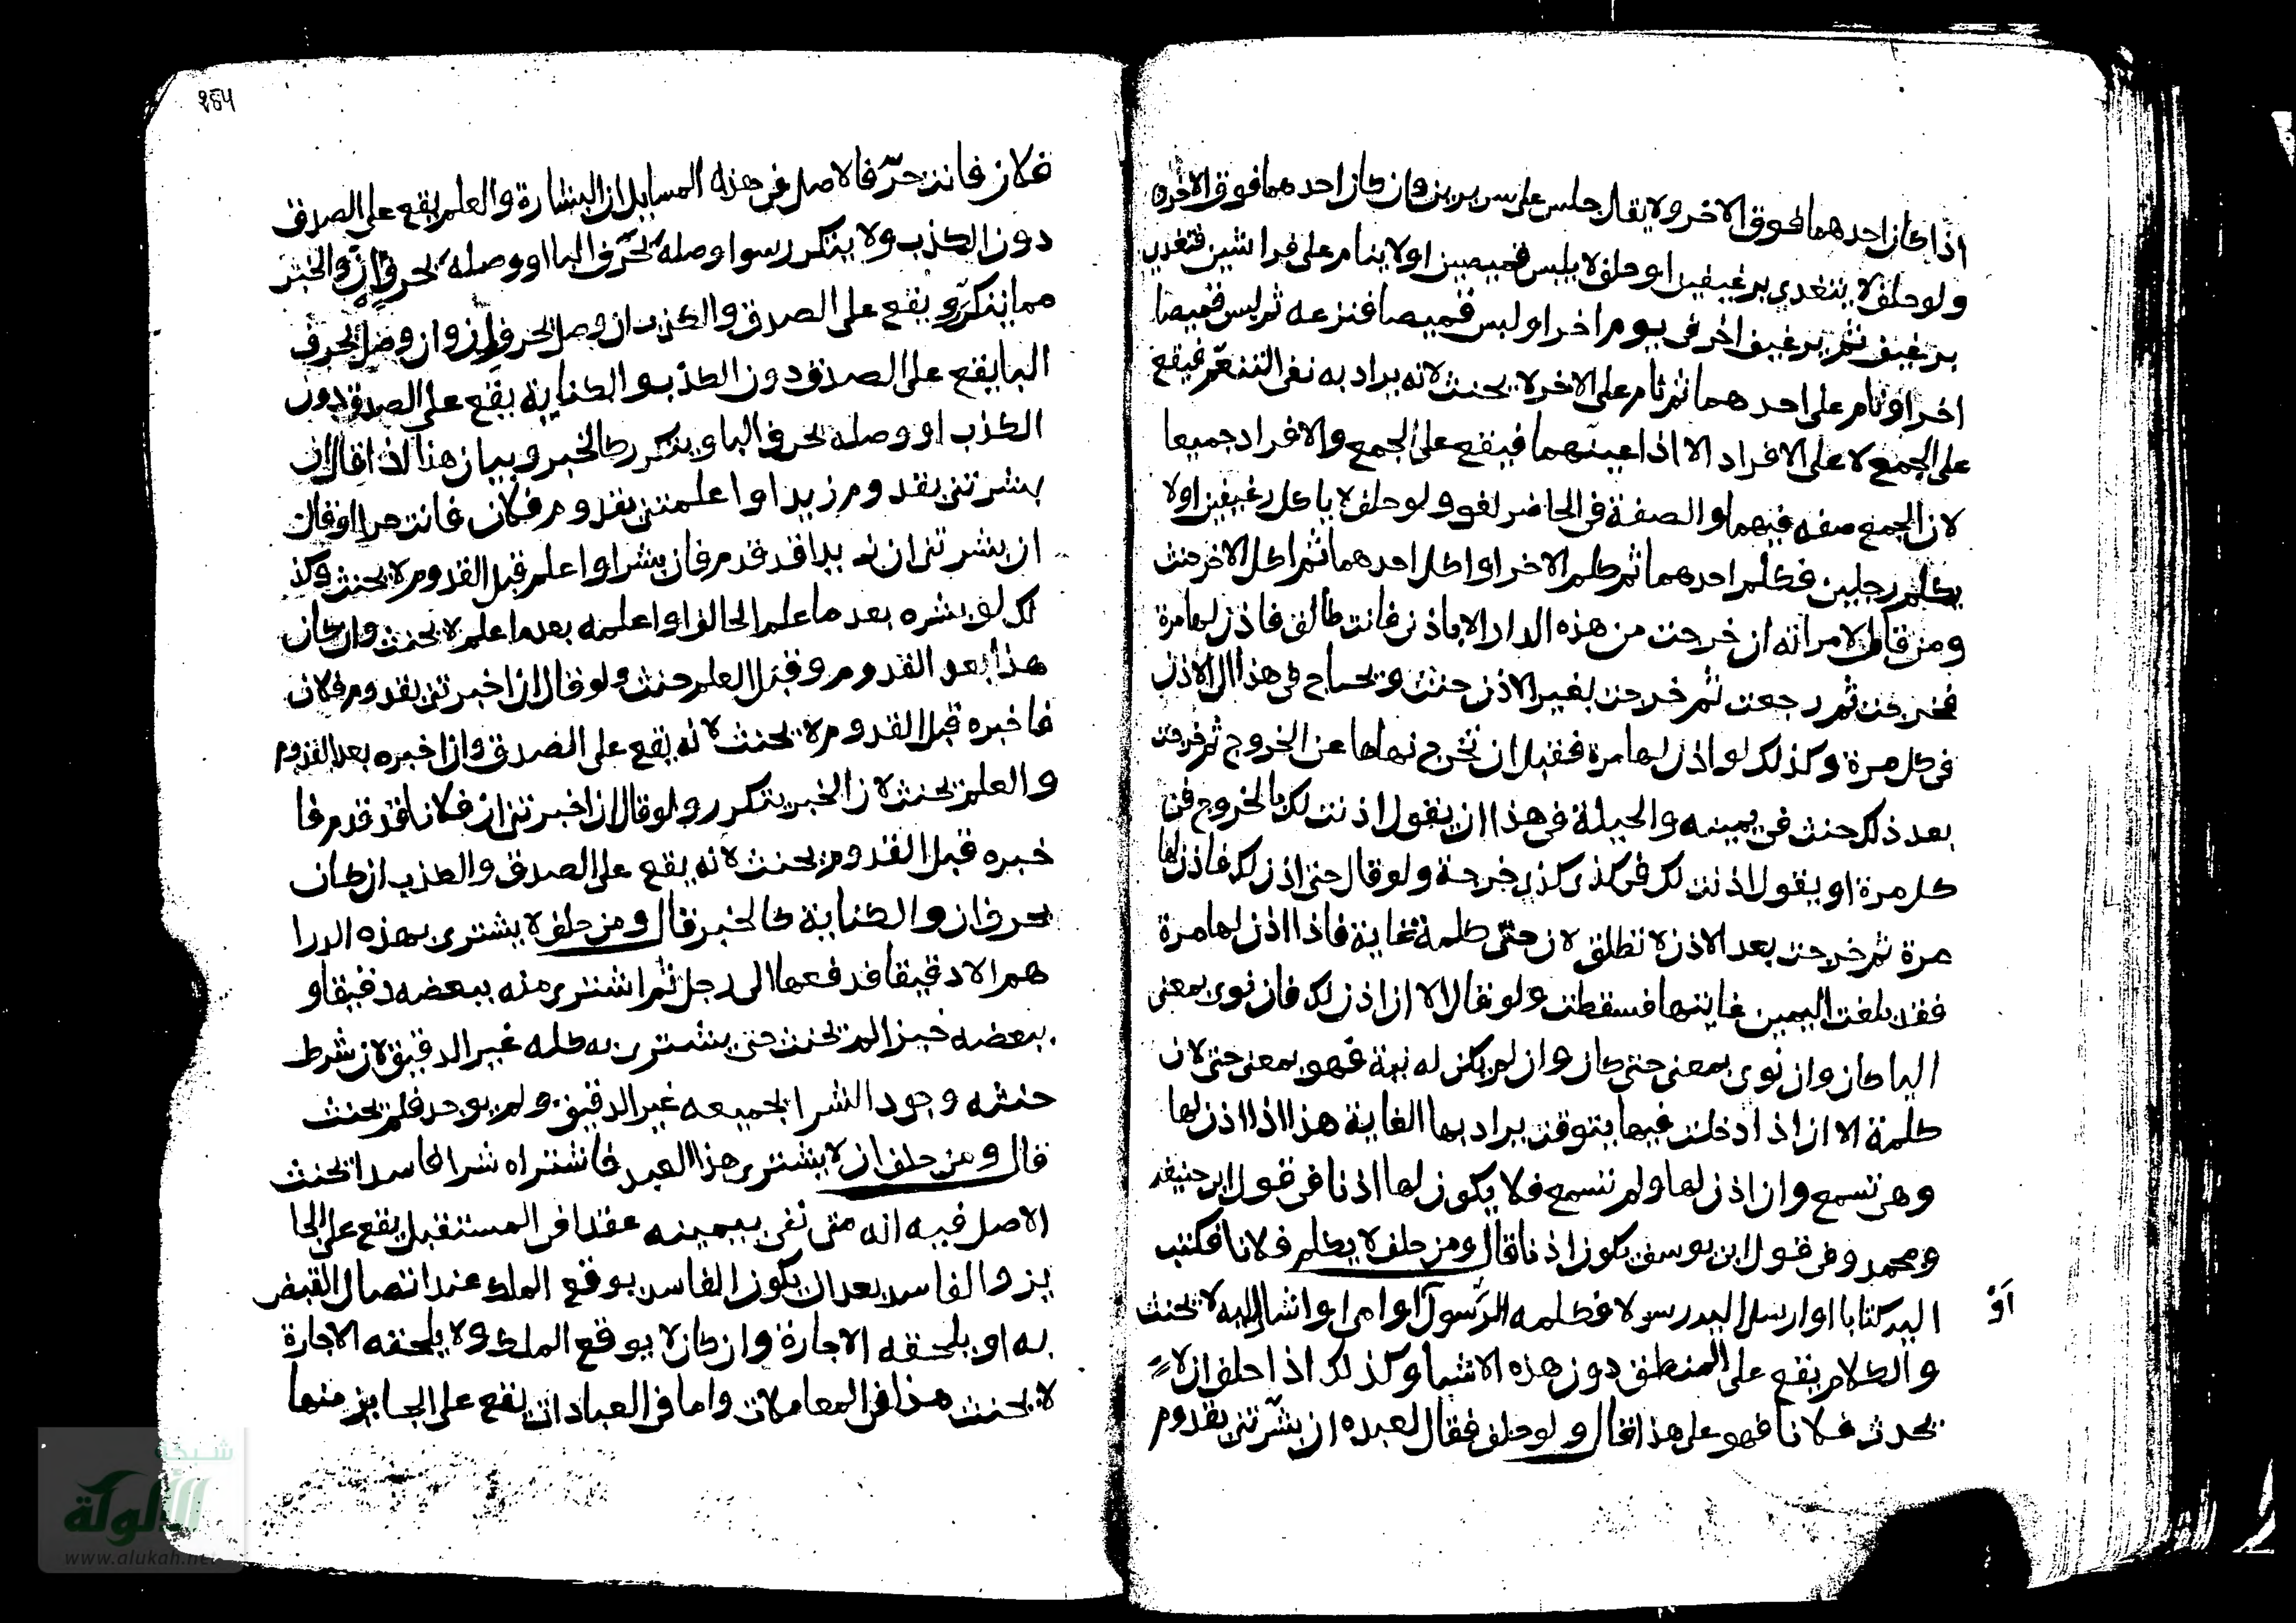 اذا كان احدهما فوق الاخر ولا يقال جلس على سريرين وان كان احدهما فوق الاخر
ولو حلف لا يتغدي برغيفين او حلف لا يلبس قميصين او لا ينام على فراشين فتغدي
برغيف ثم برغيف اخر في يوم اخر او لبس قميصا فنزعه ثم لبس قميصا
اخر او نام على احدهما ثم نام على الاخر لا يحنث لانه يراد به نفي التنعم فيقع
على الجمع لا على الافراد الا اذا عينهما فيقع على الجمع والافراد جميعا
لان الجمع صفه فيهما والصفة في الحاضر لغو ولو حلف لا ياكل رغيفين او لا
يكلم رجلين فكلم احدهما ثم كلم الاخر او اكل احدهما ثم اكل الاخر حنث
ومن قال لامراته ان خرجت من هذه الدار الا باذني فانت طالق فاذن لها مرة
فخرجت ثم رجعت ثم خرجت بغير الاذن حنث ويحتاج في هذا الى الاذن
في كل مرة وكذلك لو اذن لها مرة فقبل ان تخرج نهاها عن الخروج ثم خرجت
بعد ذلك حنث في يمينه والحيلة في هذا ان يقول اذنت لك بالخروج في
كل مرة او يقول اذنت لك في كذي كذي خرجة ولو قال حتى اذن لك فاذن لها
مرة ثم خرجت بعد الاذن لا تطلق لان حتى كلمة غاية فاذا اذن لها مرة
فقد بلغت اليمين غايتها فسقطت ولو قال الا ان اذن لك فان نوى بمعنى
البا كان وان نوى بمعنى حتى كان وان لم يكن له نية فهو بمعنى حتى لان
كلمة الا ان اذا دخلت فيها يتوقت يراد بها الغاية هذا اذا اذن لها
وهي تسمع وان اذن لها ولم تسمع فلا يكون لها اذنا في قول ابي حنيفه
ومحمد وفي قول ابي يوسف يكون اذنا قال ومن حلف لا يكلم فلانا فكتب
اليه كتابا او ارسل اليه رسولا فكلمه الرسول او امي او اشار اليه لا يحنث
أو
والكلام يقع على المنطق دون هذه الاشيا وكذلك اذا حلف ان لا
يحدث فلانا فهو على هذا قال ولو حلف فقال لعبده ان بشرتني بقدوم
١٥٤
فلان فانت حرّ فالاصل في هذه المسايل ان البشارة والعلم يقع على الصدق
دون الكذب ولا يتكرر سوا وصله بحرف البا او وصله بحرف ان والخبر
مما يتكرر ويقع على الصدق والكذب ان وصل بحرف ان وان وصل بحرف
البا يقع على الصدق دون الكذب والكناية يقع على الصدق دون
الكذب او وصله بحرف البا ويتكرر كالخبر وبيان هذا اذا قال ان
بشرتني بقدوم زيد او اعلمتني بقدوم فلان فانت حر او قال
ان بشرتني ان زيدا قد قدم فان بشر او اعلم قبل القدوم لا يحنث وكذ
لك لو بشره بعد ما علم الحالف او اعلمه بعد ما علم لا يحنث وان كان
هذا بعد القدوم وقبل العلم حنث ولو قال ان اخبرتني بقدوم فلان
فاخبره قبل القدوم لا يحنث لانه يقع على الصدق وان اخبره بعد القدوم
والعلم يحنث لان الخبر يتكرر ولو قال ان اخبرتني ان فلانا قد قدم فا
خبره قبل القدوم يحنث لانه يقع على الصدق والكذب ان كان
بحرف ان والكناية كالخبر قال ومن حلف لا يشتري بهذه الدرا
هم الا دقيقا فدفعها الى رجل ثم اشترى منه ببعضه دقيقا و
ببعضه خبزا لم يحنث حتى يشتري به كله غير الدقيق لان شرط
حنثه وجود الشرا بجميعه غير الدقيق ولم يوجد فلم يحنث
قال ومن حلف ان لا يشتري هذا العبد فاشتراه شرا فاسدا يحنث
الاصل فيه انه متى نفى بيمينه عقدا في المستقبل يقع على الجا
يز والفاسد بعد ان يكون الفاسد يوقع الملك عند اتصال القبض
به او يلحقه الاجازة وان كان لا يوقع الملك ولا يلحقه الاجازة
لا يحنث هذا في المعاملات واما في العبادات يقع على الجايز منها
شبكة
الألوكة
www.alukah.net